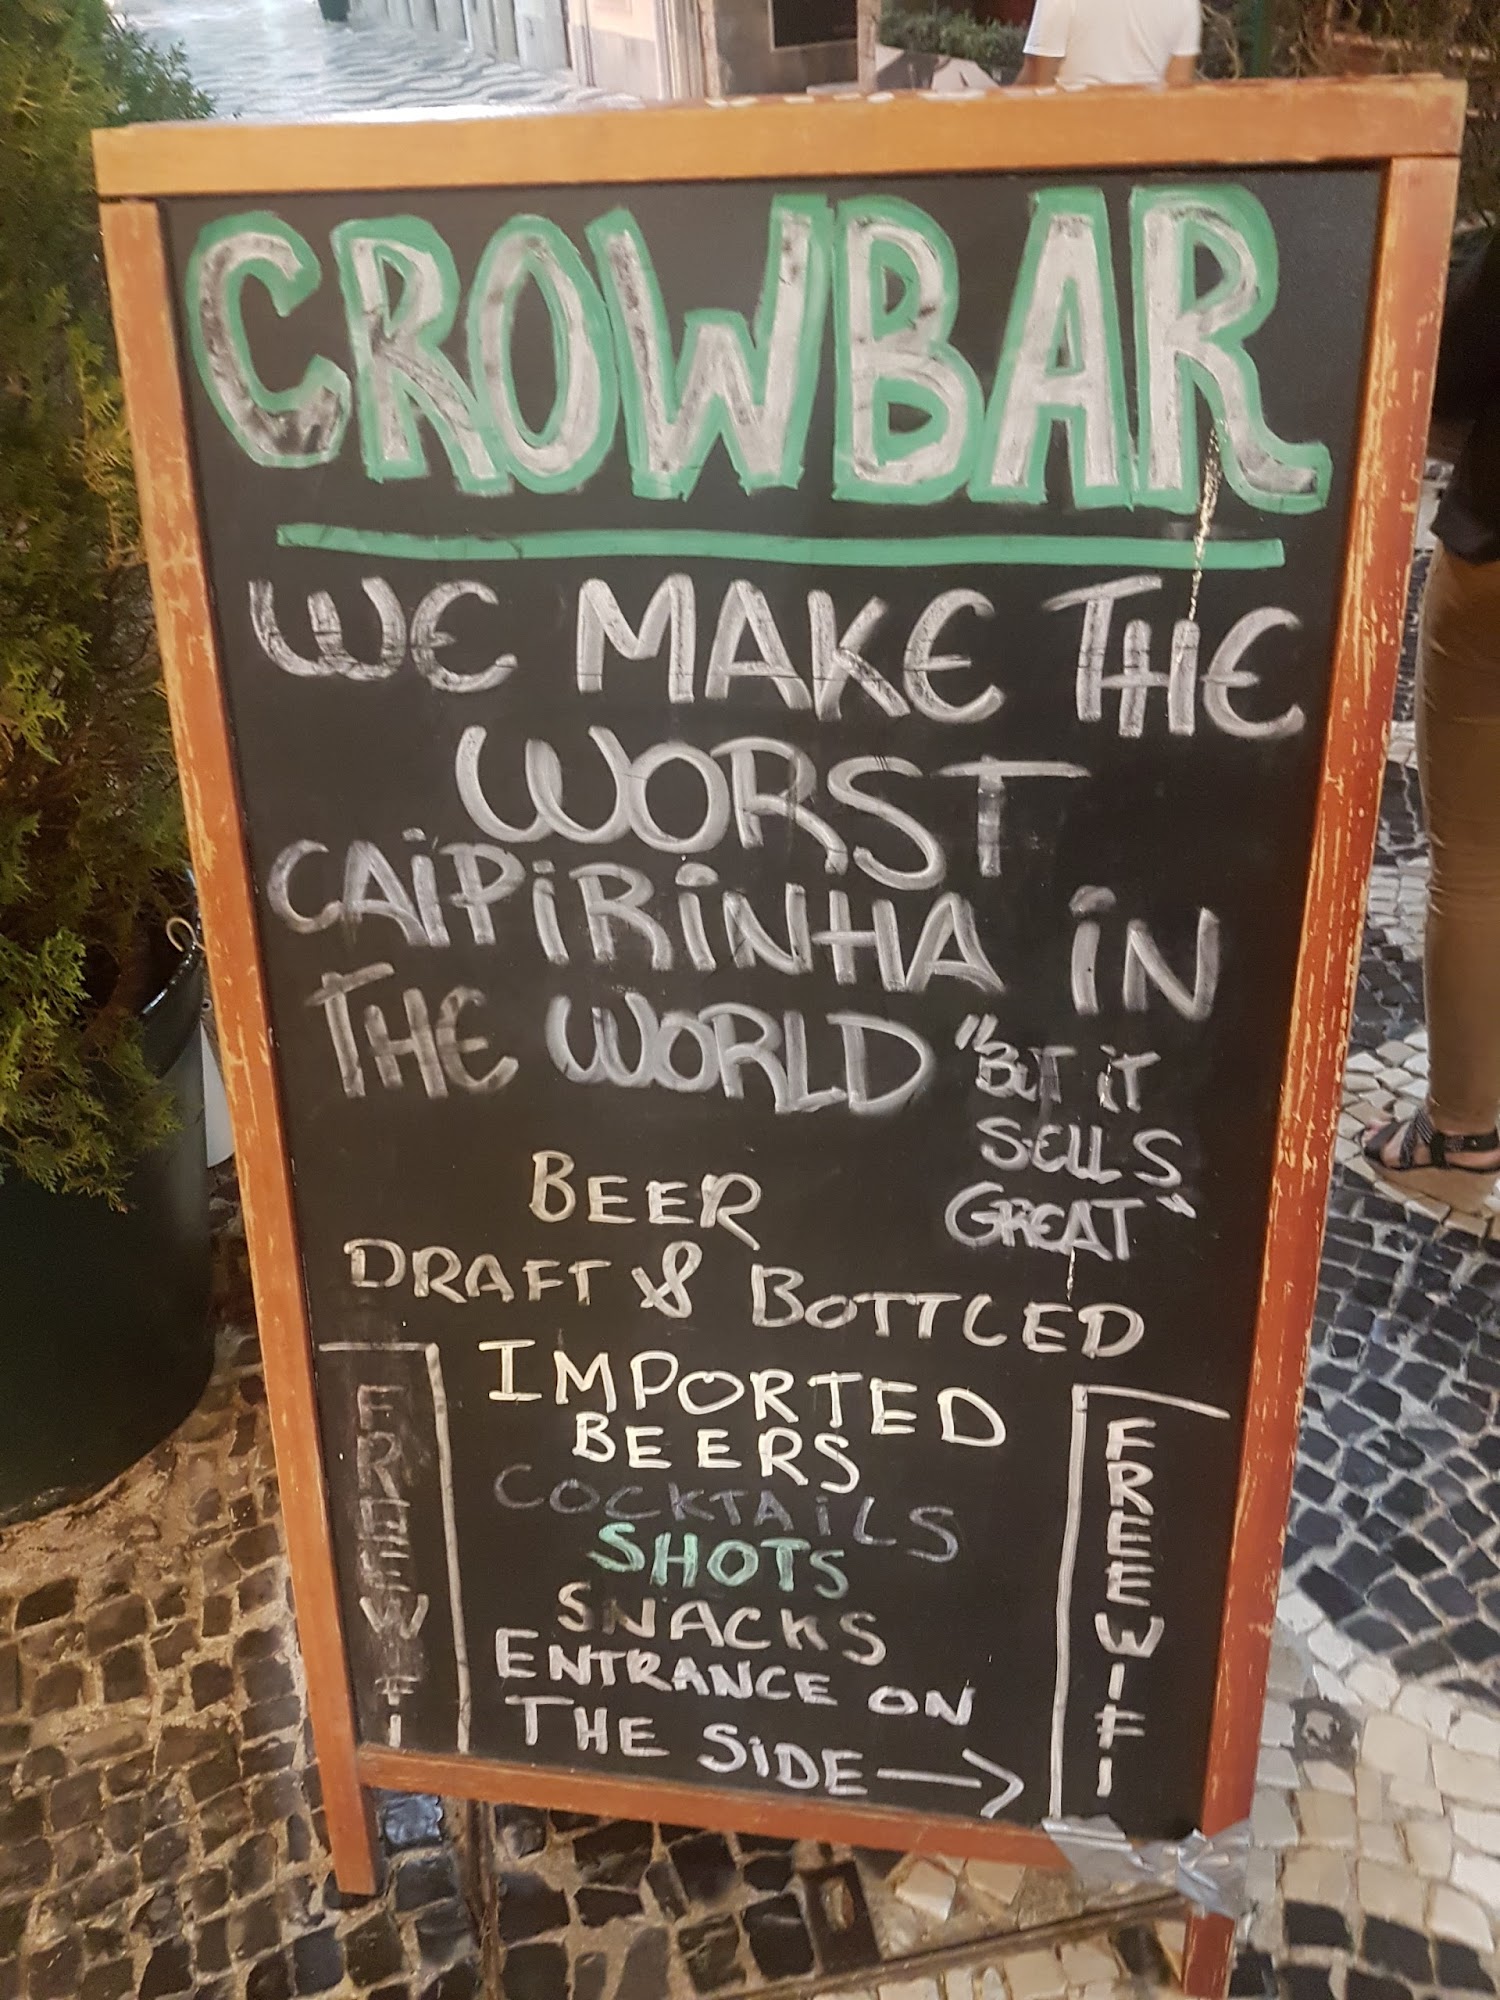 CROWBAR
WE MAKE THE
WORST
CAiPiRiNHA iN
THE WORLD "BUT iT
SELLS
GREAT"
BEER
DRAFT & BOTTLED
IMPORTED
BEERS
COCKTAiLS
SHOTS
SNACKS
ENTRANCE ON
THE SiDE →
FREE WIFI
FREE WIFI